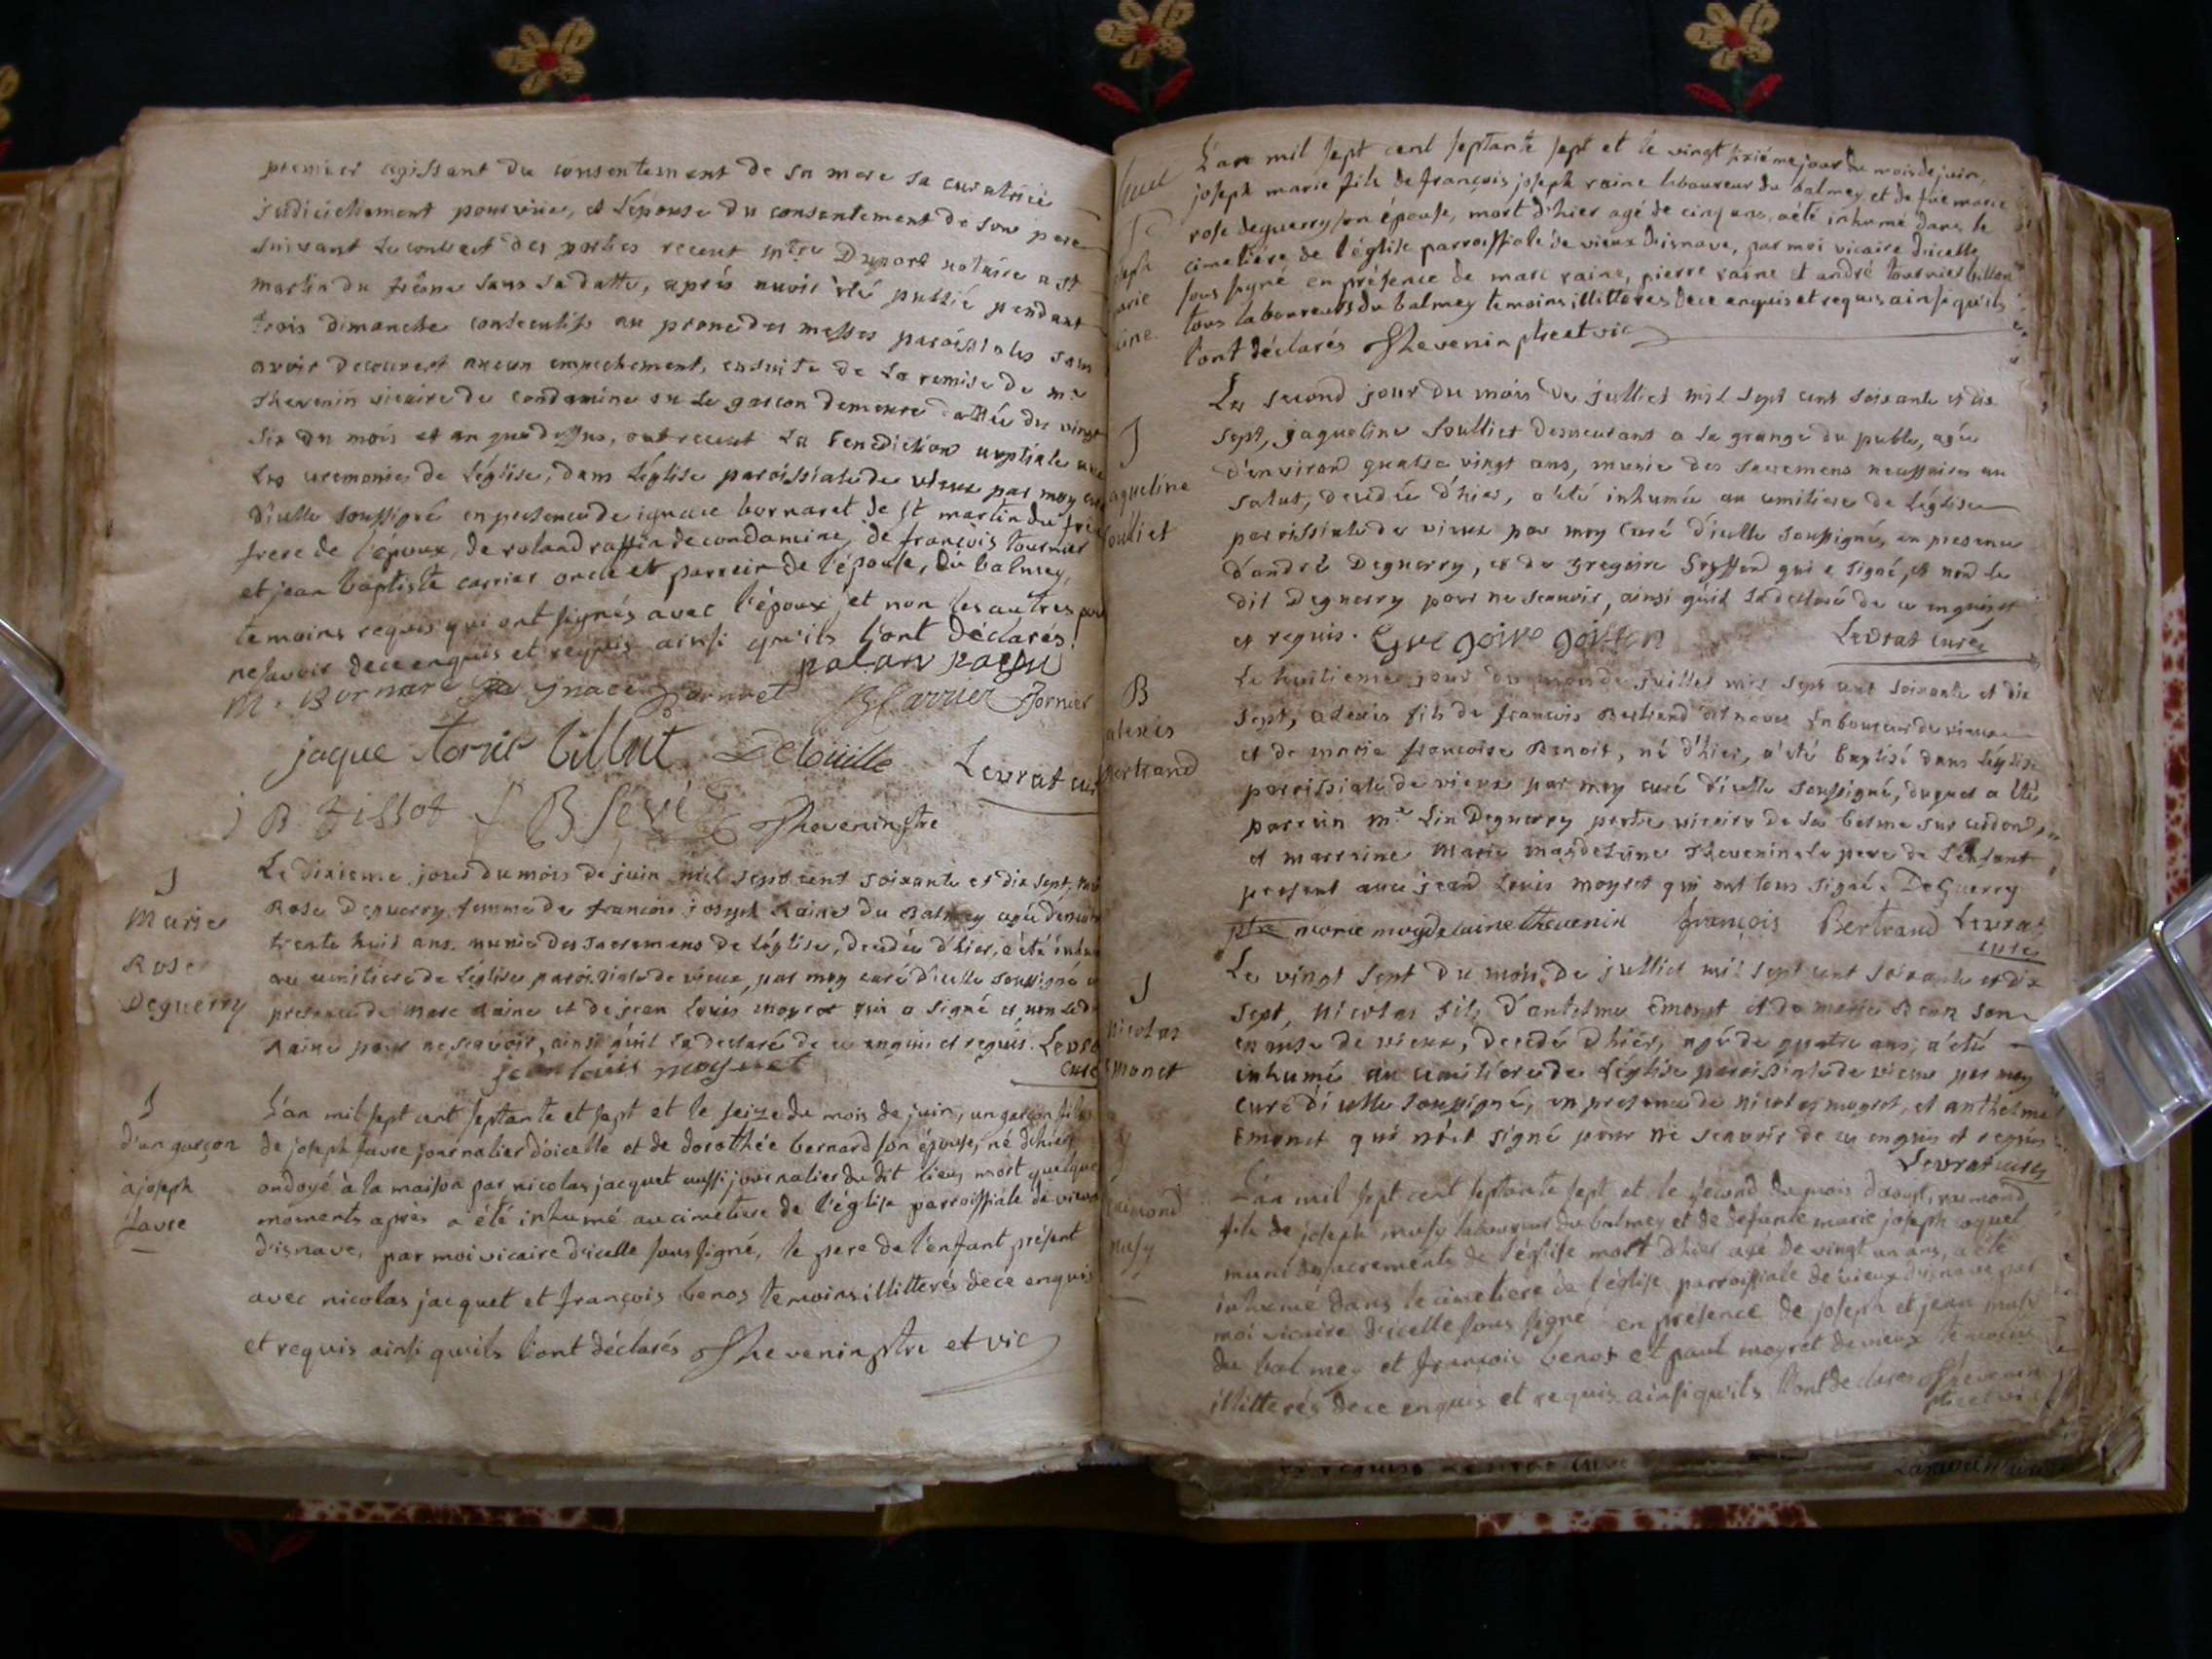 premier agissant du consentement de sa mere sa curatrice
judiciellement pourvüe, et L'épouse du consentement de son pere
suivant Le contract des parties receut mtre Duport notaire a St
martin du frêne sans sa datte, aprés avoir été publié pendant
trois dimanche consecutifs au prone des messes paroissiales sans
avoir decouvert aucun empechement, ensuite de La remise de mre
Thevenin vicaire de Condamine ou Le garcon demeure dattée du vingt
six du mois et an que dessus, ont receut La Benediction nuptiale avec
Les ceremonies de L'église, dans L'église paroissiale de vieux par moy curé
d'icelle soussigné en presence de ignace bornaret de st martin du frêne
frere de l'époux, de roland raffin de condamine, de françois tournier
et jean baptiste carrier oncle et parrein de l'épouse, du balmey,
temoins requis qui ont signés avec l'époux et non les autres pour
ne savoir de ce enquis et requis ainsi qu'ils l'ont déclarés
M. Bornare ignace Bornaret B Carrier
jaque tornie billut Delouille Levrat curé
J B Tissot Thevenin ptre
J
Marie
Rose
Deguerry
Le dixieme jour du mois de juin mil sept cent soixante et dix sept, marie
Rose Deguerry femme de francois joseph Raine du Balmey agée d'environ
trente huit ans. munie des sacremens de L'église, decedée d'hier, a été inhumée
au cemitiere de L'église paroissiale de vieux, par moy curé d'icelle soussigné en
presence de marc Raine et de jean Louis moyret qui a signé et non Le dit
Raine pour ne scavoir, ainsi qu'il La declaré de ce enquis et requis. Levrat
jean louis moyret curé
J
d'un garçon
à joseph
favre
L'an mil sept cent septante et sept et le seize du mois de juin, un garçon fils
de joseph favre journalier d'icelle et de dorothée bernard son épouse, né d'hier
ondoyé à la maison par nicolas jacquet aussi journalier du dit lieu, mort quelque
moments après a été inhumé au cimetiere de l'église parroissiale de vieux
d'isnave, par moi vicaire d'icelle sous signé, le pere de l'enfant présent
avec nicolas jacquet et françois benoz temoins illitterés de ce enquis
et requis ainsi qu'ils l'ont déclarés Thevenin ptre et vic
L'an mil sept cent septante sept et le vingt sixiéme jour du mois de juin,
joseph marie fils de françois joseph raine laboureur du balmey et de füe marie
rose deguerry son épouse, mort d'hier agé de cinq ans, a été inhumé dans le
cimetiére de l'église parroissiale de vieux d'isnave, par moi vicaire d'icelle
sous signé en présence de marc raine, pierre raine et andré tournier billon
tous laboureurs du balmey temoins illitterés de ce enquis et requis ainsi qu'ils
l'ont déclarés Thevenin ptre et vic
J
Jaqueline
Soulliet
Le second jour du mois de julliet mil sept cent soixante et dix
sept, jaqueline Soulliet demeurant a La grange du , agée
d'environ quatre vingt ans, munie des sacremens necessaires au
salut, decedée d'hier, a été inhumée au cemitiere de L'église
paroissiale de vieux par moy Curé d'icelle soussigné, en presence
d'andré Deguerry, et de gregoire qui a signé, et non Le
dit Deguerry pour ne scavoir, ainsi qu'il La declaré de ce enquis et
et requis. Gregoire Levrat curé
B
alexis
Bertrand
Le huitieme jour du mois de juillet mil sept cent soixante et dix
sept, alexis fils de francois Bertrand dit Laboureur de vieux
et de marie francoise Benoit, né d'hier, a été baptisé dans L'église
paroissiale de vieux par moy curé d'icelle soussigné, duquel a été
parrein mre Lin Deguerry pretre vicaire de La balme sur cerdon,
et marraine Marie magdeleine Thevenin Le pere de L'enfant
present avec jean Louis moyret qui ont tous signé. DeGuerry
ptre marie magdelaine thevenin françois Bertrand Levrat
curé
J
nicolas
Emonet
Le vingt sept du mois de julliet mil sept cent soixante et dix
sept, nicolas fils d'antelme Emonet et de marie
de vieux, decedé d'hier, agé de quatre ans, a été
inhumé au cemitiere de L'église paroissiale de vieux par moy
curé d'icelle soussigné, en presence de nicolas moyret, et anthelme
Emonet qui n'ont signé pour ne scavoir de ce enquis et requis
Levrat curé
J
raimond
musy
L'an mil sept cent septante sept et le second du mois d'aoust, raimond
fils de joseph musy laboureur du balmey et de defunte marie joseph coquet
muni des sacrements de l'église mort d'hier agé de vingt un ans, a été
inhumé dans le cimetiere de l'église parroissiale de vieux d'isnave par
moi vicaire d'icelle sous signé en présence de joseph et jean musy
du balmey et françois benoz et paul moyret de vieux temoins
illitterés de ce enquis et requis ainsi qu'ils l'ont declarés Thevenin
ptre et vic